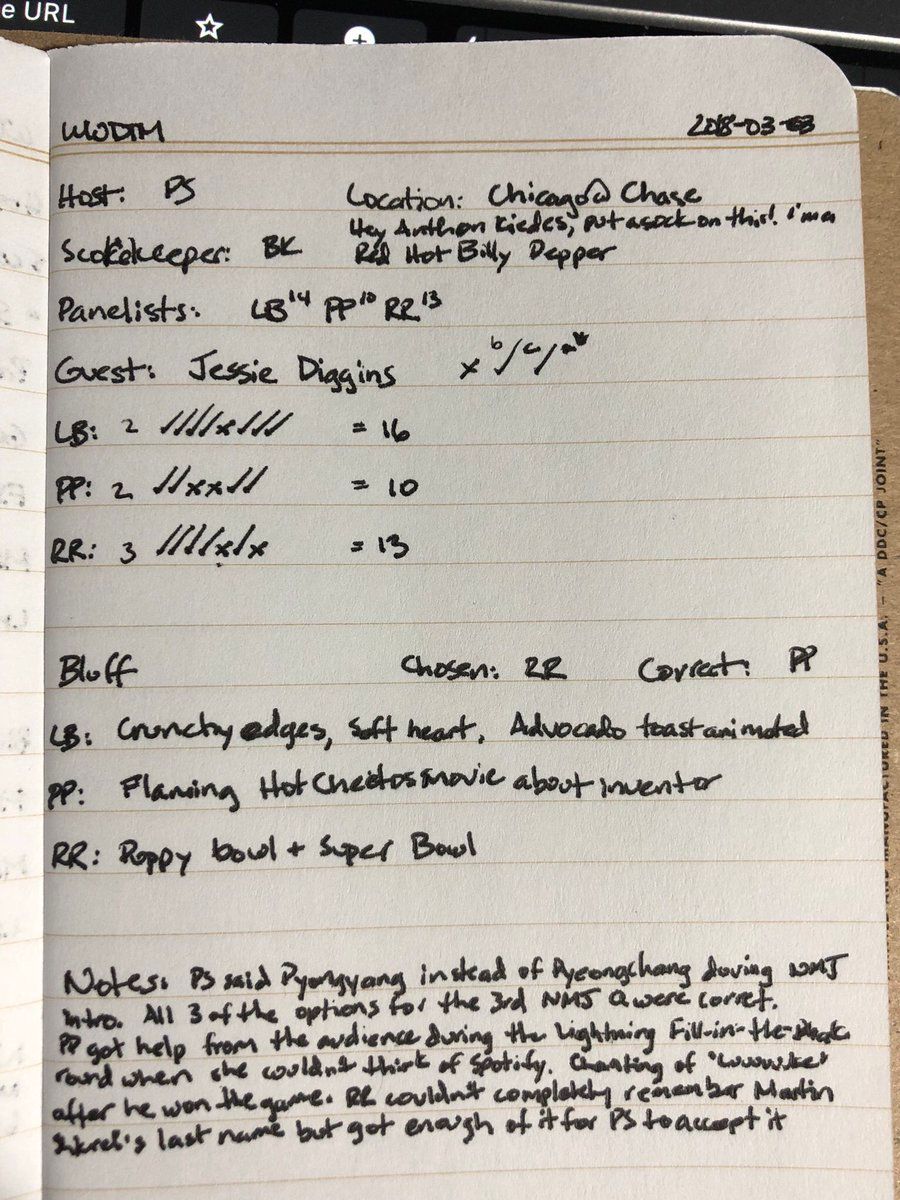 e URL
WWDTM 2018-03-03
Host: PS Location: Chicago @ Chase
Hey Anthon Kiedes, put a sock on this! I'm a
Scorekeeper: BK Red Hot Billy Depper
Panelists: LB14 PP10 RR13
Guest: Jessie Diggins
LB: 2 ////x/// = 16
PP: 2 //xx// = 10
RR: 3 ////x/x = 13
Bluff Chosen: RR Correct: PP
LB: Crunchy edges, Soft heart, Advocado toast animated
PP: Flaming Hot Cheetos movie about inventor
RR: Poppy bowl + Super Bowl
Notes: PS said Pyongyang instead of Pyeongchang during NMJ
intro. All 3 of the options for the 3rd NMJ Q were corret.
PP got help from the audience during the Lightning Fill-in-the-Blank
round when she couldn't think of Spotify. Chanting of
after he won the game. RR couldn't completely remember Martin
Skreli's last name but got enough of it for PS to accept it
AND MANUFACTURED IN THE U.S.A. — "A DDC/CP JOINT"